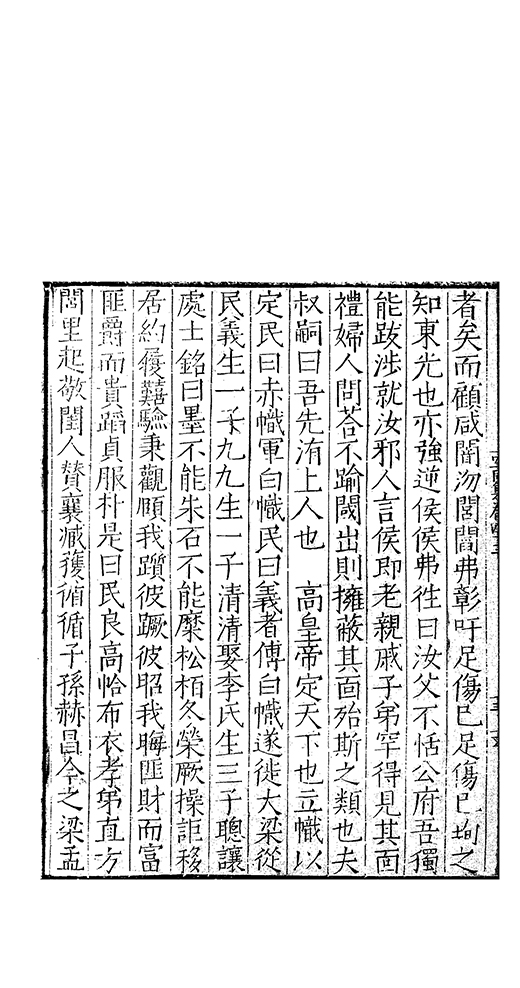 者矣而顧咸闇沕閭閻弗彰吁足傷巳足傷巳珣之
知東光也亦強逆侯侯弗徃曰汝父不恬公府吾獨
能跋涉就汝邪人言侯即老親戚子弟罕得見其面
禮婦人問荅不踰閾出則擁蔽其面殆斯之類也夫
叔嗣曰吾先洧上人也　高皇帝定天下也立幟以
定民曰赤幟軍白幟民曰義者傅白幟遂徙大梁從
民義生一子九九生一子清清娶李氏生三子聰讓
處士銘曰墨不能朱石不能糜松栢冬榮厥操詎移
居約履囏驗秉觀頤我躓彼蹶彼昭我晦匪財而富
匪爵而貴蹈貞服朴是曰民良高帢布衣孝弟直方
閭里起敬閨人贊襄臧獲循循子孫赫昌今之梁孟